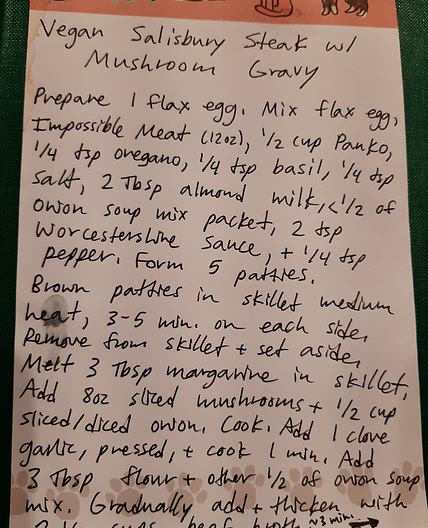 Vegan Salisbury Steak w/
Mushroom Gravy
Prepare 1 flax egg. Mix flax egg,
Impossible Meat (12oz), 1/2 cup Panko,
1/4 tsp oregano, 1/4 tsp basil, 1/4 tsp
salt, 2 Tbsp almond milk, <1/2 of
onion soup mix packet, 2 tsp
Worcestershire sauce, + 1/4 tsp
pepper. Form 5 patties.
Brown patties in skillet medium
heat, 3-5 min. on each side.
Remove from skillet + set aside.
Melt 3 Tbsp margarine in skillet.
Add 8oz sliced mushrooms + 1/2 cup
sliced/diced onion. Cook. Add 1 clove
garlic, pressed, + cook 1 min. Add
3 Tbsp flour + other 1/2 of onion soup
mix. Gradually add + thicken with
cups beef broth ~3 min.